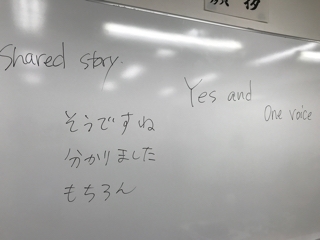 Shared story.
Yes and
One voice
そうですね
分かりました
もちろん